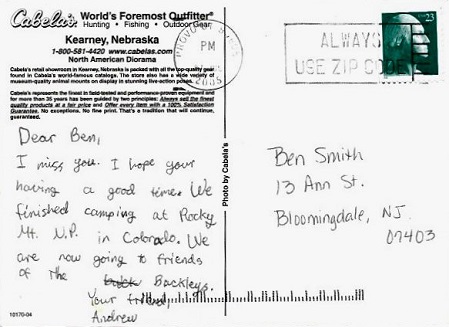 Cabela's World's Foremost Outfitter®
Hunting • Fishing • Outdoor Gear
Kearney, Nebraska
1-800-581-4420 www.cabelas.com
North American Diorama
Cabela's retail showroom in Kearney, Nebraska is packed with all of the top-quality gear
found in Cabela's world-famous catalogs. The store also has a wide variety of
museum-quality animal mounts on display in stunning live-action poses.
Cabela's represents the finest in field-tested and performance-proven equipment and
for more than 35 years has been guided by two principles: Always sell the finest
quality products at a fair price and Offer every item with a 100% Satisfaction
Guarantee. No exceptions. No fine print. That's a tradition that will continue,
guaranteed.
Dear Ben,
I miss you. I hope your
having a good time. We
finished camping at Rocky
Mt. N.P. in Colorado. We
are now going to friends
of the Backleys.
Your friend,
Andrew
10170-04
Photo by Cabela's
PROVO
PM
ALWAYS
USE ZIP CODE
23
Ben Smith
13 Ann St.
Bloomingdale, NJ
07403